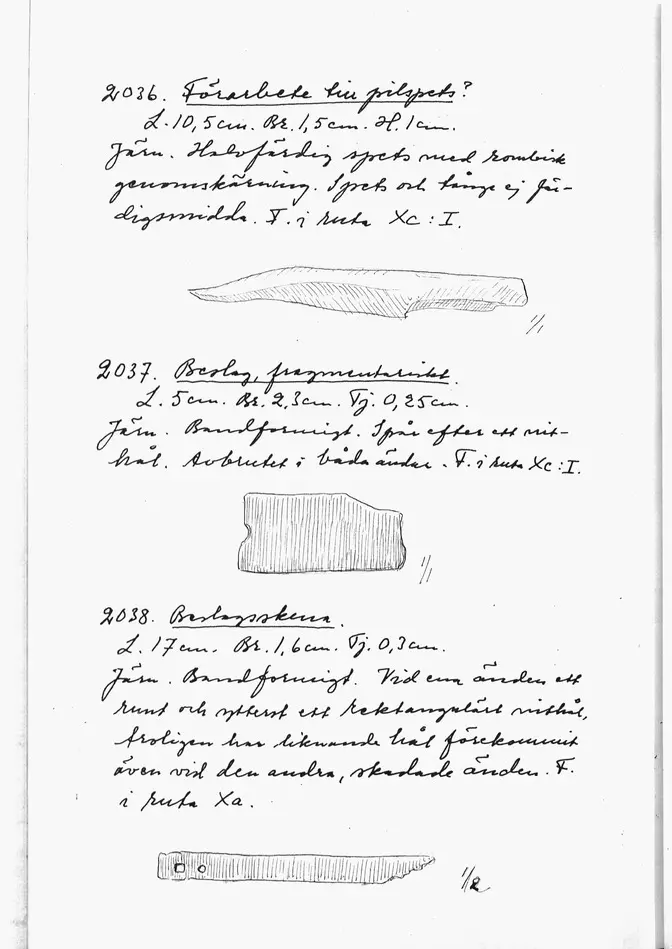 2036. Förarbete till pilspets?
L. 10,5 cm. Br. 1,5 cm. H. 1 cm.
Järn. Halvfärdig spets med rombisk
genomskärning. Spets och tånge ej fär-
digsmidda. F. i ruta Xc : I.
1/1
2037. Beslag, fragmentariskt.
L. 5 cm. Br. 2,3 cm. Tj. 0,25 cm.
Järn. Bandformigt. Spår efter ett nit-
hål. Avbrutet i båda ändar. F. i ruta Xc : I.
1/1
2038. Beslagsskena.
L. 17 cm. Br. 1,6 cm. Tj. 0,3 cm.
Järn. Bandformigt. Vid ena änden ett
runt och ytterst ett rektangulärt nithål,
troligen har liknande hål förekommit
även vid den andra, skadade änden. F.
i ruta Xa.
1/2